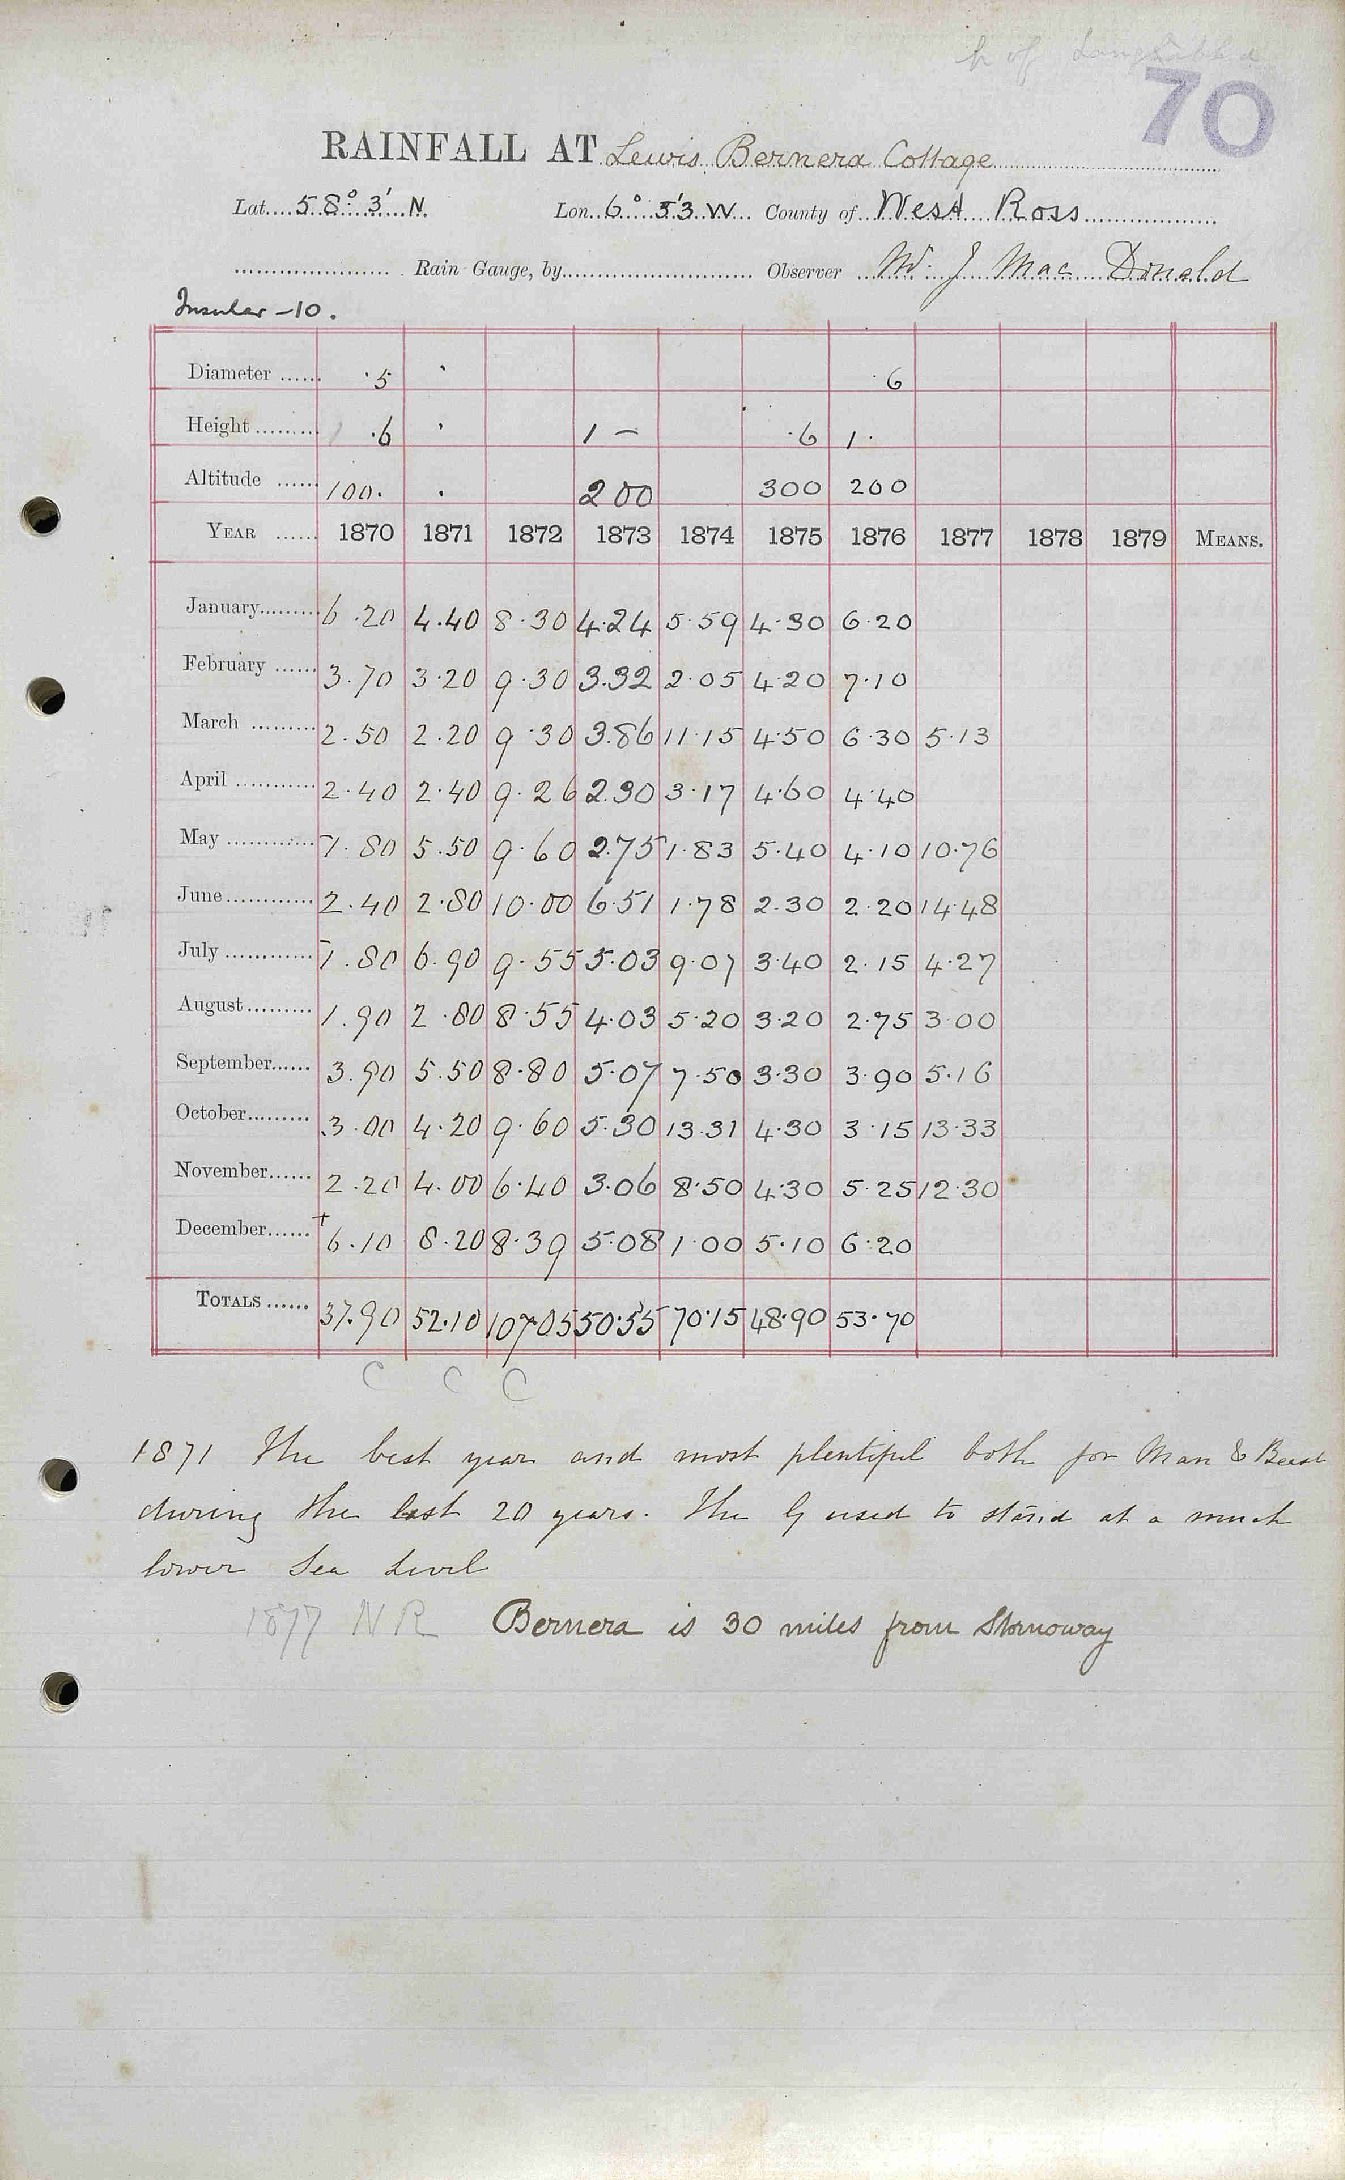 70
RAINFALL AT Lewis, Bernera Cottage
Lat. 58° 3' N. Lon. 6° 53' W County of West Ross
Rain Gauge, by Observer W. J Mac Donald
Insular - 10.
Diameter ...... .5 6
Height ......... .6 1 – .6 1.
Altitude ...... 100. 200 300 200
YEAR ...... 1870 1871 1872 1873 1874 1875 1876 1877 1878 1879 MEANS.
January ......... 6.20 4.40 8.30 4.24 5.59 4.30 6.20
February ...... 3.70 3.20 9.30 3.32 2.05 4.20 7.10
March ......... 2.50 2.20 9.30 3.86 11.15 4.50 6.30 5.13
April ............ 2.40 2.40 9.26 2.30 3.17 4.60 4.40
May ............ 1.80 5.50 9.60 2.75 1.83 5.40 4.10 10.76
June ............ 2.40 2.80 10.00 6.51 1.78 2.30 2.20 14.48
July ............ 1.80 6.90 9.55 5.03 9.07 3.40 2.15 4.27
August ......... 1.90 2.80 8.55 4.03 5.20 3.20 2.75 3.00
September ...... 3.90 5.50 8.80 5.07 7.50 3.30 3.90 5.16
October ......... 3.00 4.20 9.60 5.30 13.31 4.30 3.15 13.33
November ...... 2.20 4.00 6.40 3.06 8.50 4.30 5.25 12.30
December ...... + 6.10 8.20 8.39 5.08 1.00 5.10 6.20
TOTALS ...... 37.90 52.10 107.05 50.55 70.15 48.90 53.70
C C C
1871 The best year and most plentiful both for Man & Beast
during the last 20 years. The G used to stand at a much
lower Sea Level
1877 NR Bernera is 30 miles from Stornoway